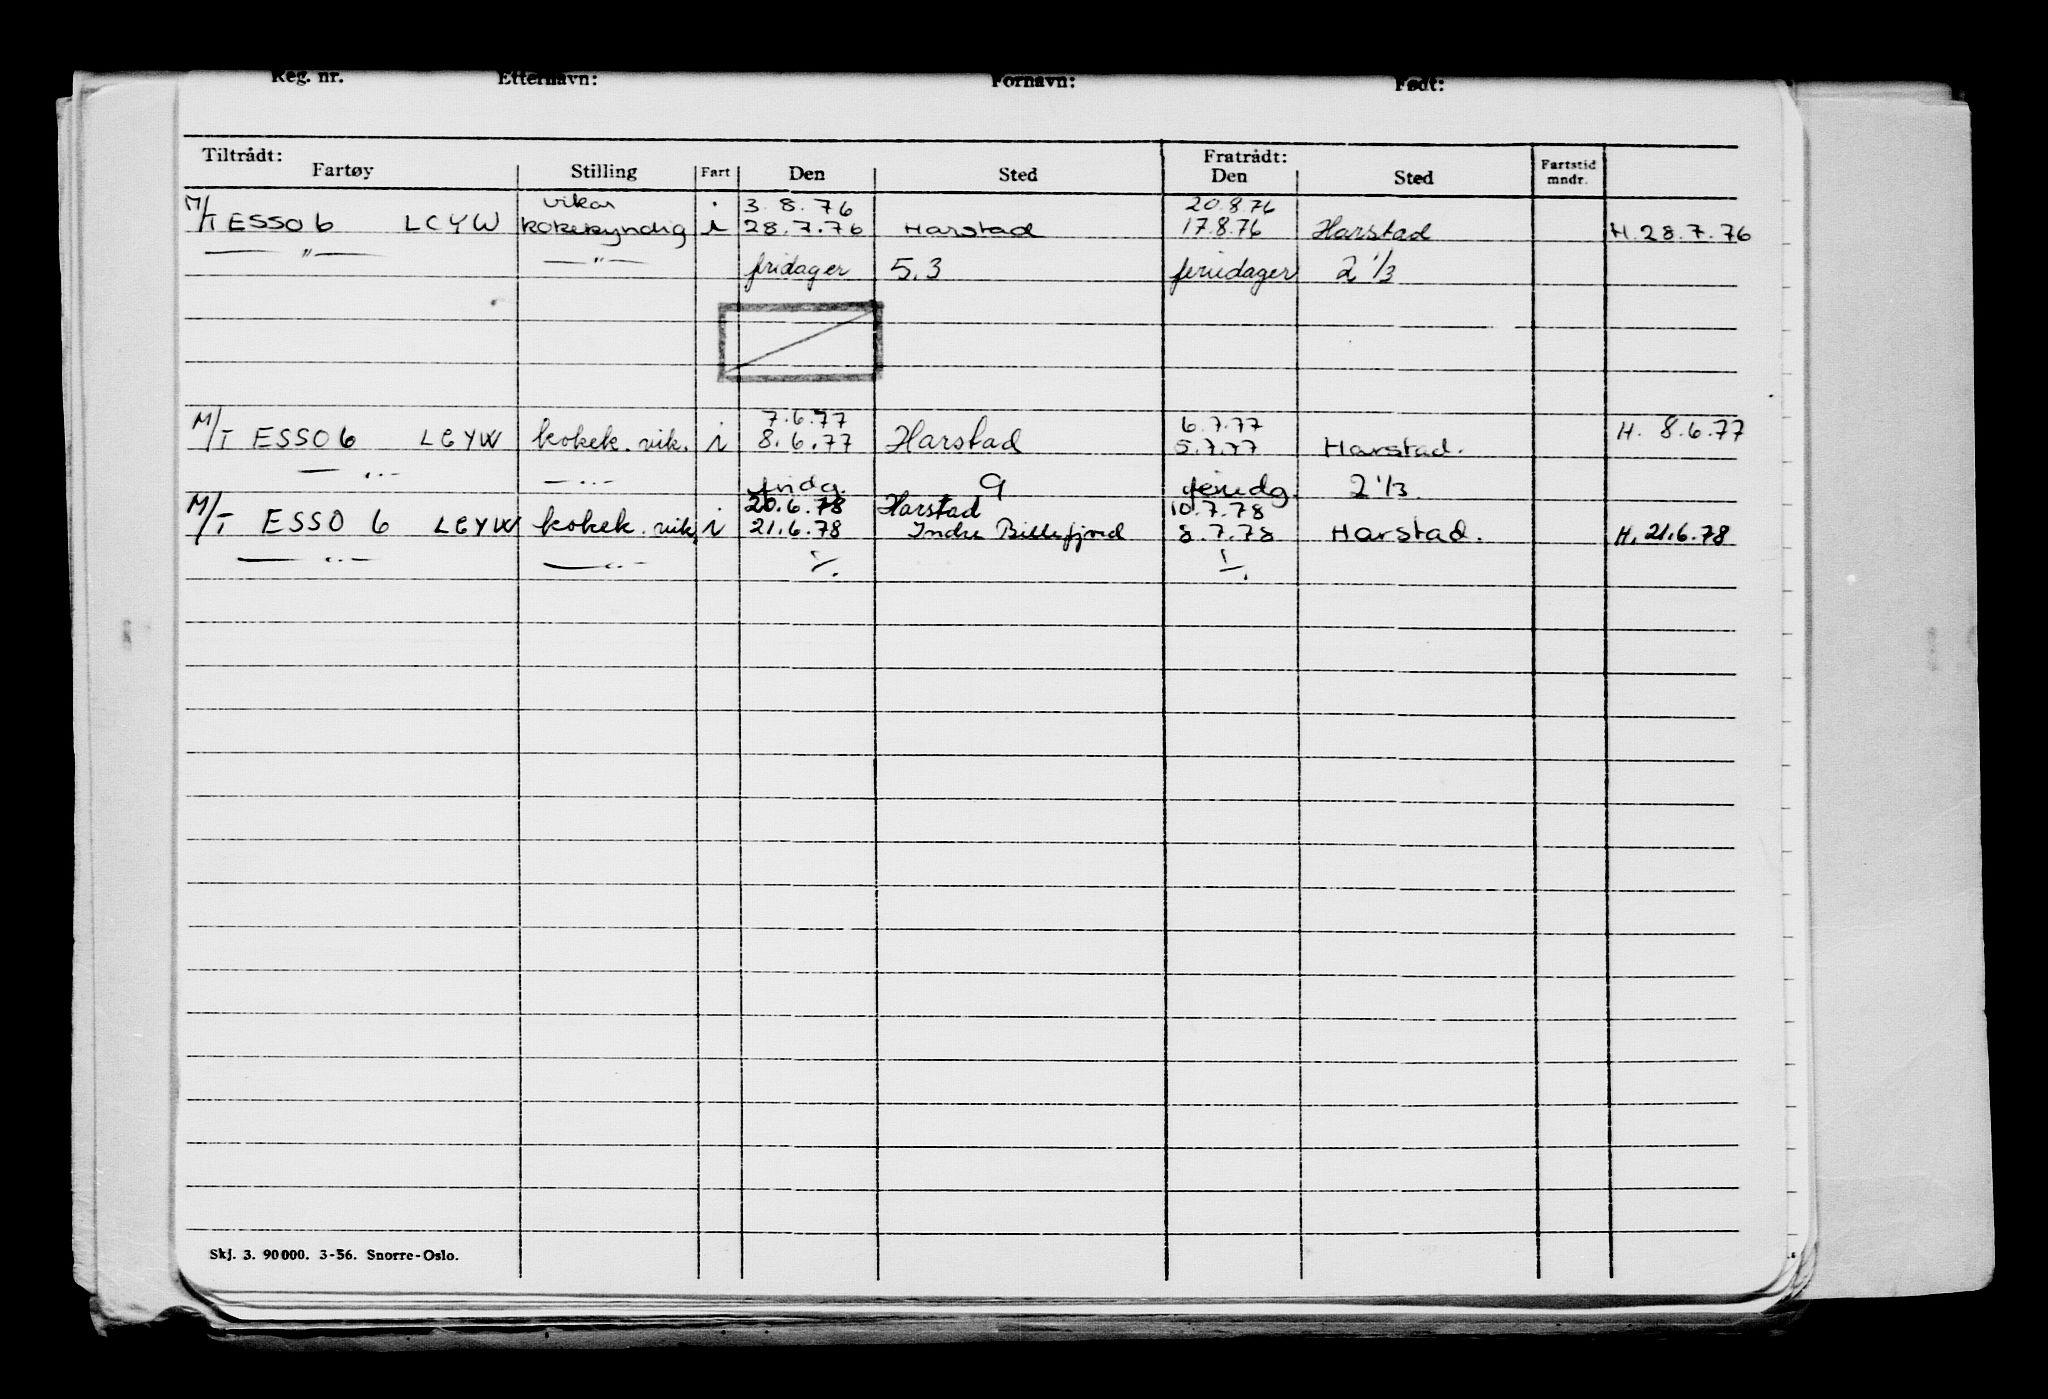 Reg. nr. Etternavn: Fornavn: Født:
Tiltrådt: Fratrådt:
Fartøy Stilling Fart Den Sted Den Sted Fartstid mndr.
vikar 3.8.76 20.8.76
M/T ESSO 6 LCYW kokekyndig i 28.7.76 Harstad 17.8.76 Harstad H. 28.7.76
— " — — " — fridager 5.3 feriedager 2 1/3
7.6.77 6.7.77
M/T ESSO 6 LCYW kokek. vik. i 8.6.77 Harstad 5.7.77 Harstad. H. 8.6.77
— " — — " — fridg. 9 feriedg. 2 1/3.
20.6.78 Harstad 10.7.78
M/T ESSO 6 LCYW kokek. vik. i 21.6.78 Indre Billefjord 8.7.78 Harstad. H. 21.6.78
— " — — " —
Skj. 3. 90000. 3-56. Snorre-Oslo.